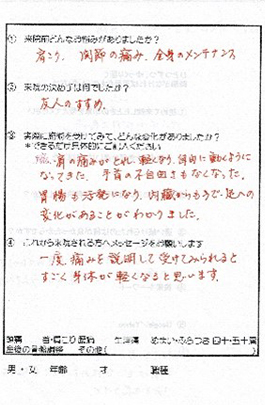 ① 来院前どんなお悩みがありましたか？
肩こり、関節の痛み、全身のメンテナンス
② 来院の決め手は何でしたか？
友人のすすめ。
③ 実際に施術を受けてみて、どんな変化がありましたか？
*できるだけ具体的にご記入ください
肩の痛みがとれ軽くなり、自由に動くように
なってきた。手首の不自由さもなくなった。
胃腸も活発になり、内臓からも手・足への
変化があることがわかりました。
④ これから来院される方へメッセージをお願いします
一度、痛みを説明して受けてみられると
すごく身体が軽くなると思います。
頭痛 首・肩こり 腰痛 生理痛 めまい・ふらつき 四十・五十肩
産後の骨盤調整 その他(
男・女 年齢 才 職種